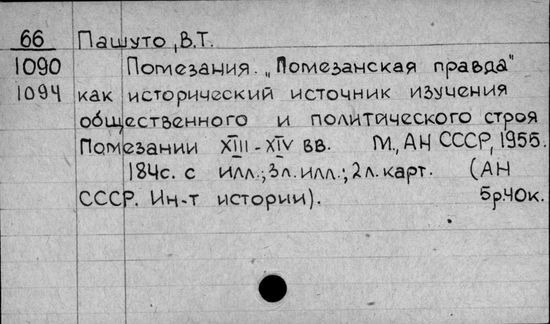 66 Пашуто, В.Т.
1090 Помезания. „Помезанская правда"
1094 как исторический источник изучения
общественного и политического строя
Помезании XIII-XIV вв. М., АН СССР, 1955.
184с. с илл.; 3л. илл.; 2л. карт. (АН
СССР. Ин-т истории). 5р.40к.